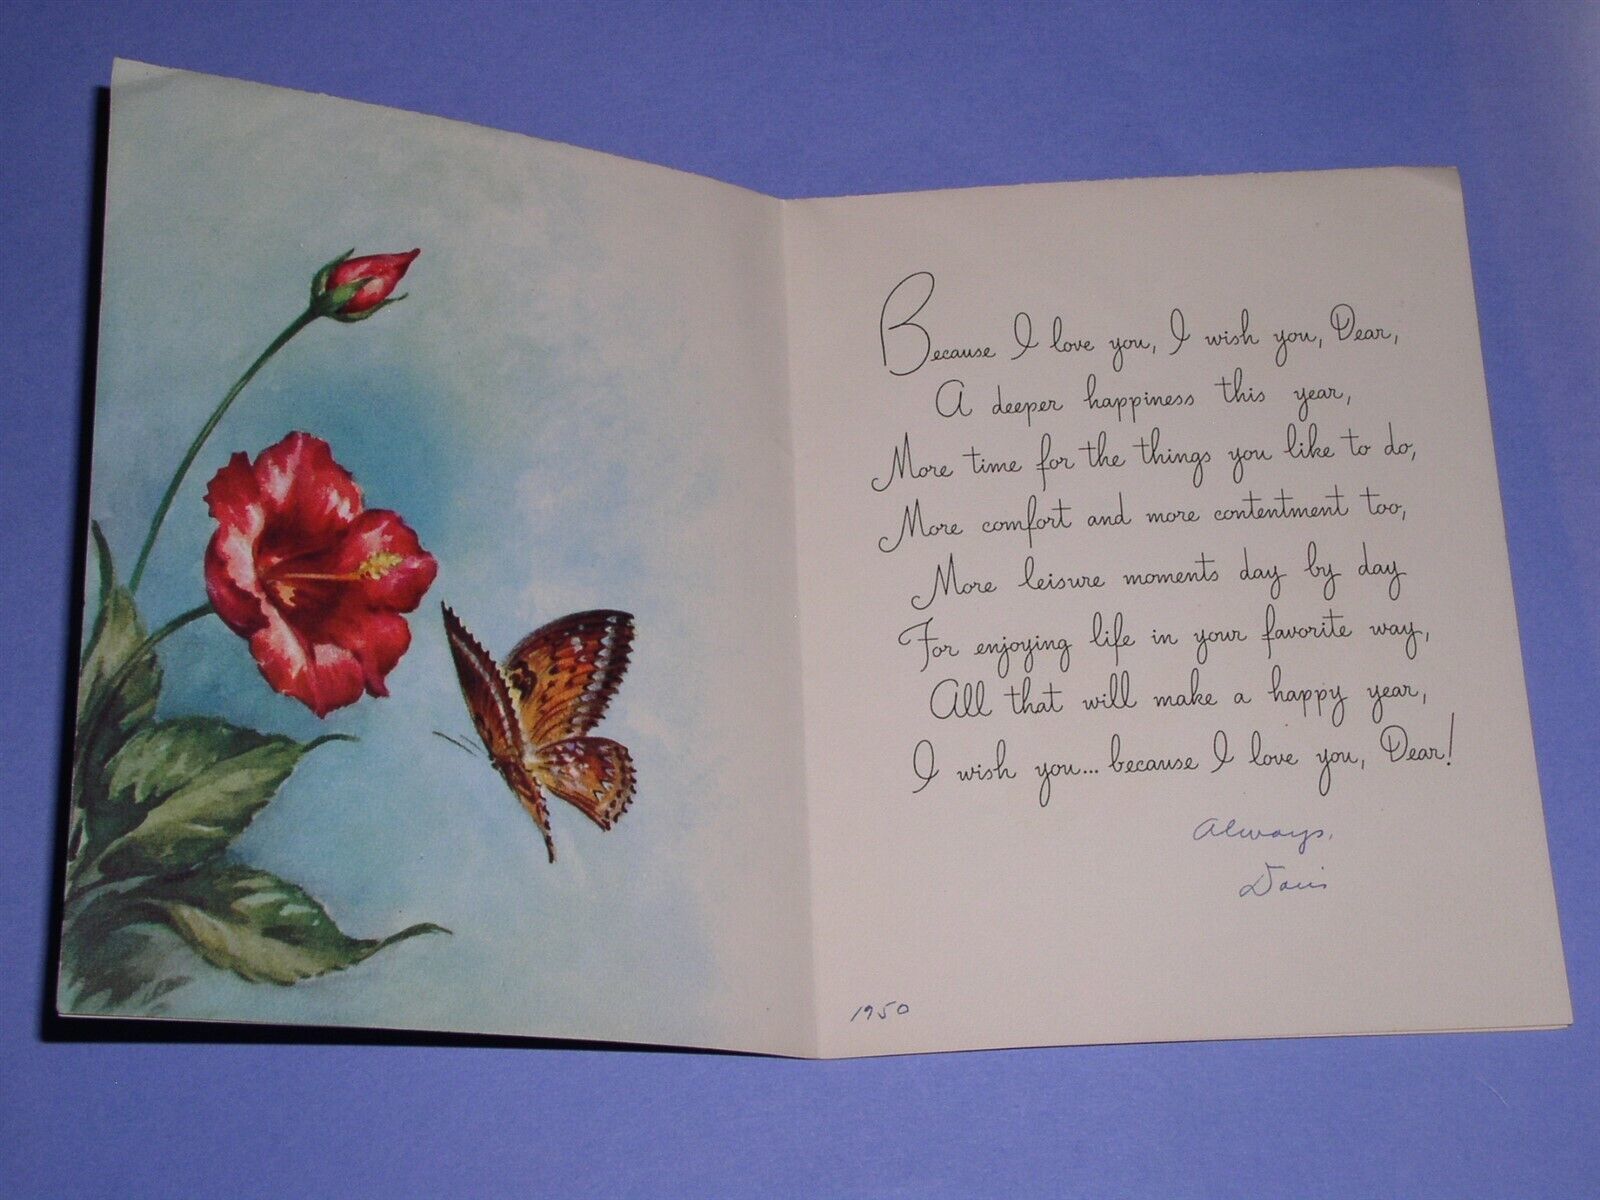 Because I love you, I wish you, Dear,
A deeper happiness this year,
More time for the things you like to do,
More comfort and more contentment too,
More leisure moments day by day
For enjoying life in your favorite way,
All that will make a happy year,
I wish you... because I love you, Dear!
Always,
Doris
1950